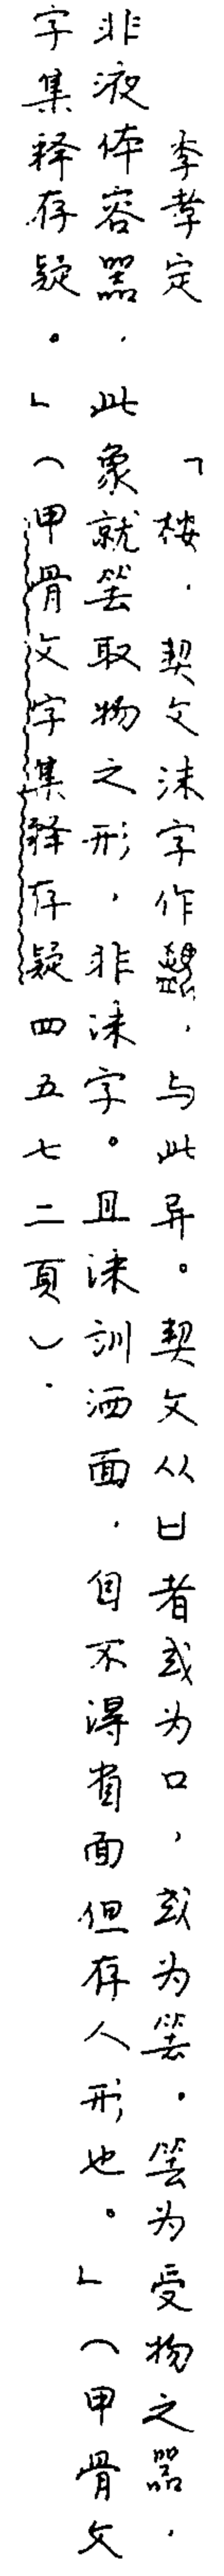 李孝定 「桉．契文沬字作，与此异。契文从凵者或为口，或为𥬔．𥬔为受物之器．
非液体容器．此象就𥬔取物之形，非沬字。且沬训洒面．自不得省面但存人形也。」（甲骨文
字集释存疑。」（甲骨文字集释存疑四五七二頁）．